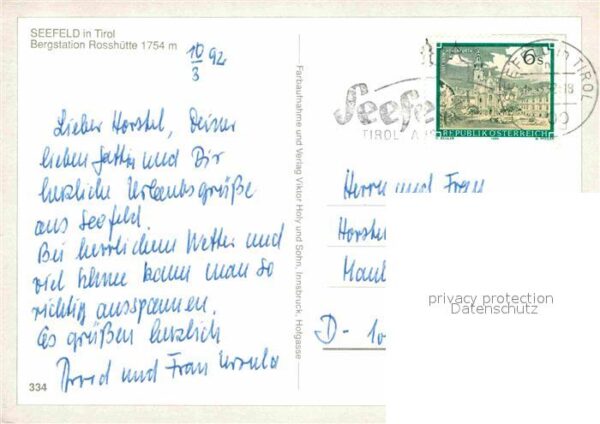 SEEFELD in Tirol
Bergstation Rosshütte 1754 m
10/3 92
Lieber Horstel, Deiner
lieben Gattin und Dir
herzliche Urlaubsgrüße
aus Seefeld.
Bei herrlichem Wetter und
viel Schnee kann man so
richtig ausspannen.
Es grüßen herzlich
und Frau Ursula
334
Farbaufnahme und Verlag Viktor Holy und Sohn, Innsbruck, Hofgasse
6 S
REPUBLIK ÖSTERREICH
Seefe
TIROL
in TIROL
Herrn und Frau
Horste
D-
privacy protection
Datenschutz